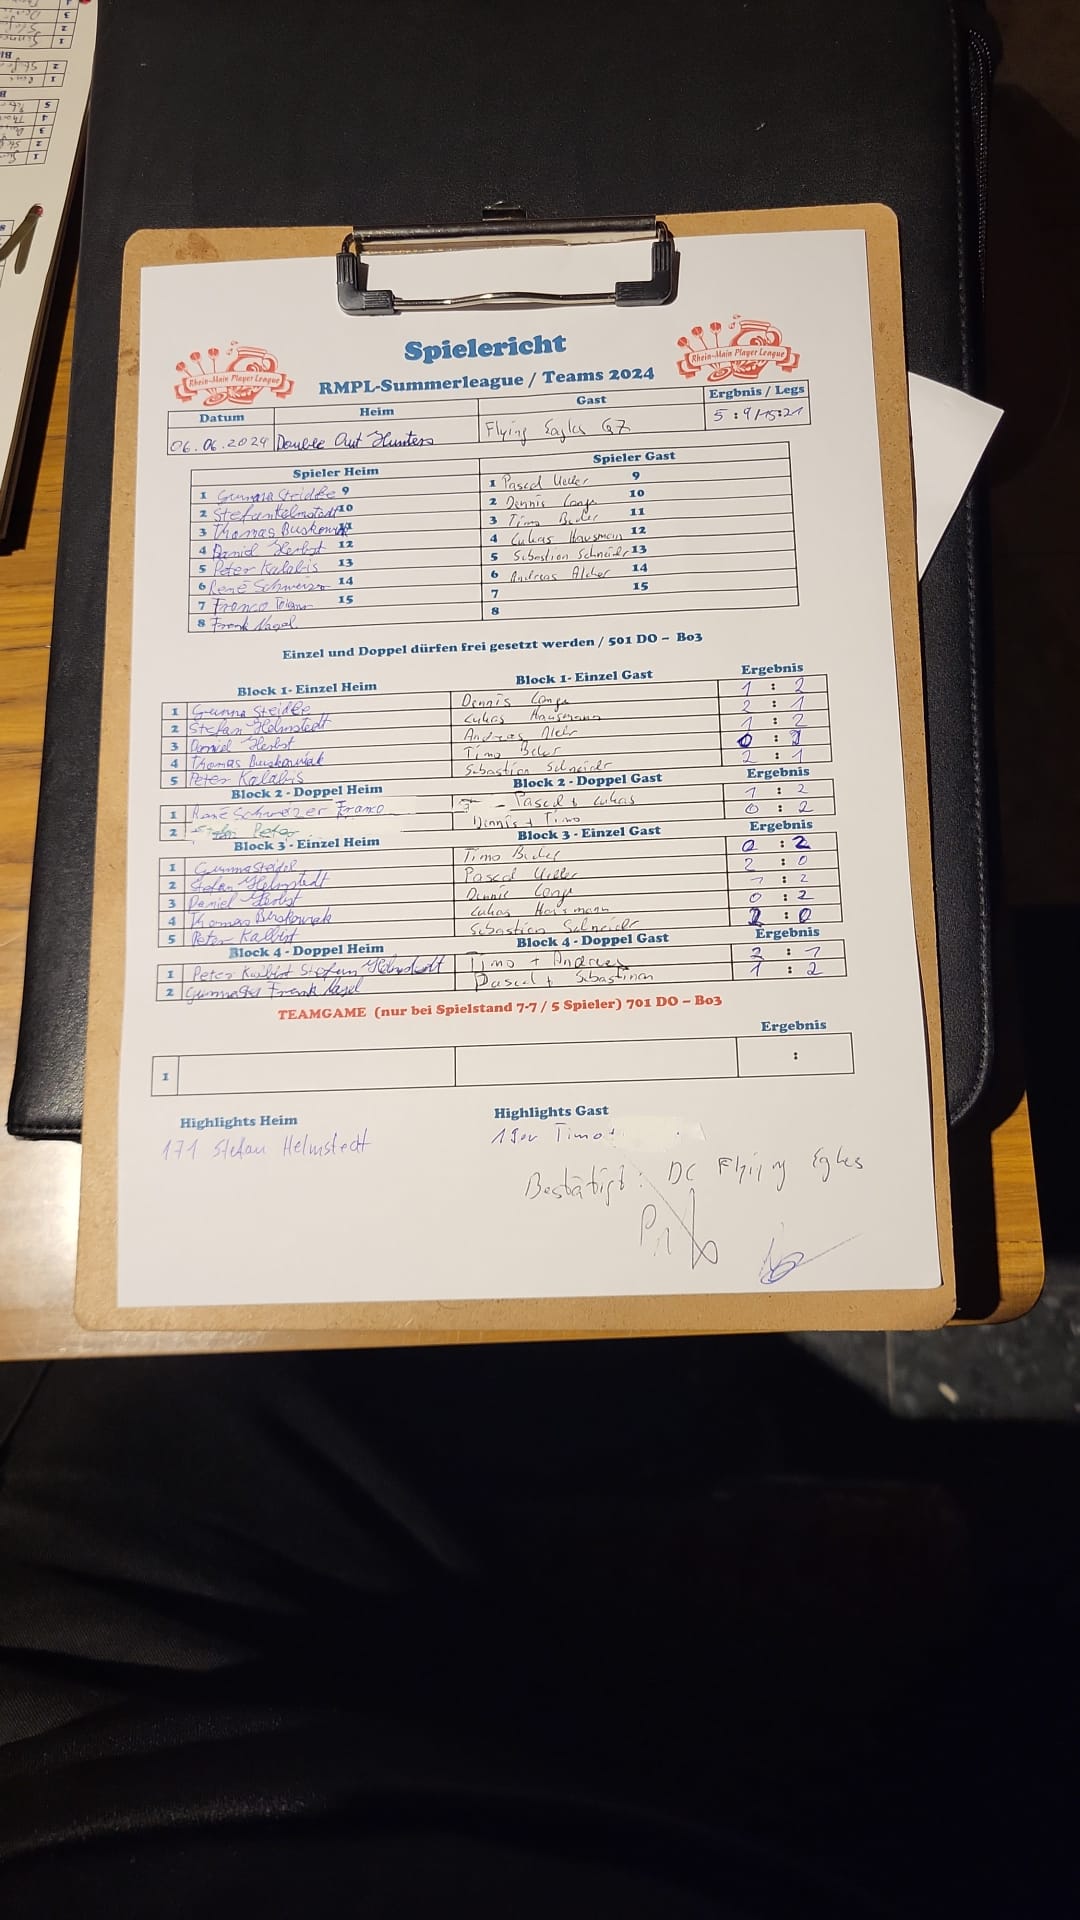 Spielericht
RMPL-Summerleague / Teams 2024
Rhein-Main Player League
Rhein-Main Player League
Datum Heim Gast Ergbnis / Legs
06.06.2024 Double Out Hunters Flying Eagles GZ 5:9/15:21
Spieler Heim Spieler Gast
1 Steidle 9 1 Pascal 9
2 Stefan Helmstedt 10 2 Dennis Lange 10
3 Thomas Buskowiak 11 3 Timo 11
4 Daniel Herbst 12 4 Lukas Hausmann 12
5 Peter Kalabis 13 5 Sebastian Schneider 13
6 René Schweizer 14 6 Andreas 14
7 Franco 15 7 15
8 Frank Nagel 8
Einzel und Doppel dürfen frei gesetzt werden / 501 DO – Bo3
Block 1- Einzel Heim Block 1- Einzel Gast Ergebnis
1 Steidle Dennis Lange 1 : 2
2 Stefan Helmstedt Lukas Hausmann 2 : 1
3 Daniel Herbst Andreas 1 : 2
4 Thomas Buskowiak Timo 0 :
5 Peter Kalabis Sebastian Schneider 2 : 1
Block 2 - Doppel Heim Block 2 - Doppel Gast Ergebnis
1 René Schweizer Franco - Pascal + Lukas 1 : 2
2 Peter Dennis + Timo 0 : 2
Block 3 - Einzel Heim Block 3 - Einzel Gast Ergebnis
1 Timo : 2
2 Stefan Helmstedt Pascal 2 : 0
3 Daniel Herbst Dennis Lange 1 : 2
4 Thomas Lukas Hausmann 0 : 2
5 Peter Sebastian Schneider 2 : 0
Block 4 - Doppel Heim Block 4 - Doppel Gast Ergebnis
1 Peter Stefan Helmstedt Timo + Andreas 2 : 1
2 Frank Nagel Pascal + 1 : 2
TEAMGAME (nur bei Spielstand 7-7 / 5 Spieler) 701 DO – Bo3
Ergebnis
1 :
Highlights Heim Highlights Gast
171 Stefan Helmstedt Timo
Bestätigt: DC